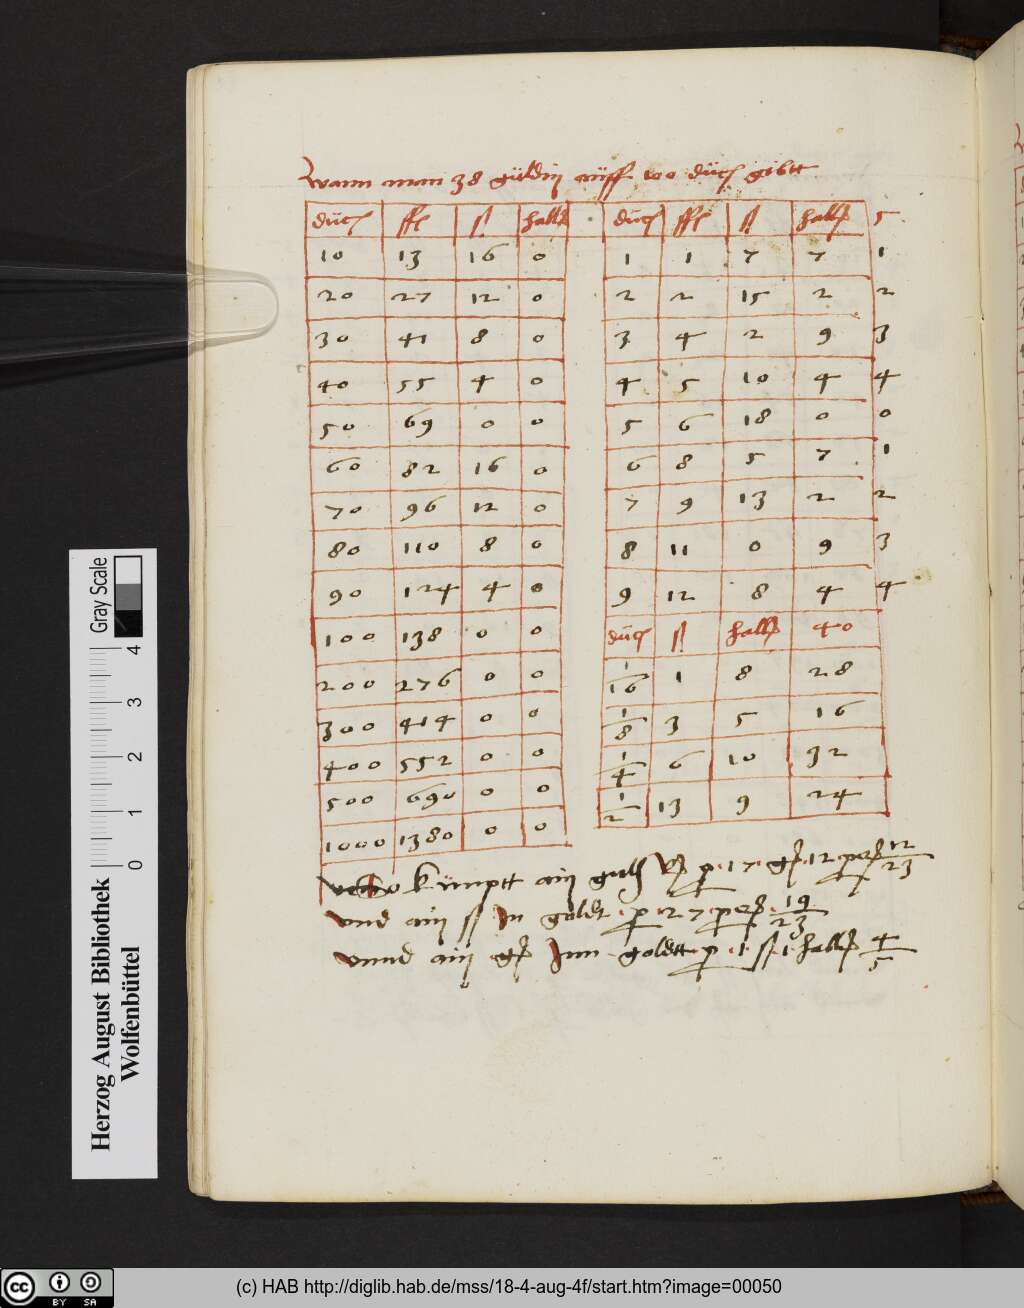 Wann man 38 güldin auff 100 duc gibtt
duc ffl ß hallr
10 13 16 0
20 27 12 0
30 41 8 0
40 55 4 0
50 69 0 0
60 82 16 0
70 96 12 0
80 110 8 0
90 124 4 0
100 138 0 0
200 276 0 0
300 414 0 0
400 552 0 0
500 690 0 0
1000 1380 0 0
duc ffl ß hallr 5
1 1 7 7 1
2 2 15 2 2
3 4 2 9 3
4 5 10 4 4
5 6 18 0 0
6 8 5 7 1
7 9 13 2 2
8 11 0 9 3
9 12 8 4 4
duc ß hallr 40
1/16 1 8 28
1/8 3 5 16
1/4 6 10 32
1/2 13 9 24
kümptt ain p 17 12 12/23
und ain ß In goldt p 27 19/23
unnd ain Inn goldtt p 1 ß 1 hallr 4/5
Herzog August Bibliothek
Wolfenbüttel
0 1 2 3 4
Gray Scale
cc BY SA
(c) HAB http://diglib.hab.de/mss/18-4-aug-4f/start.htm?image=00050